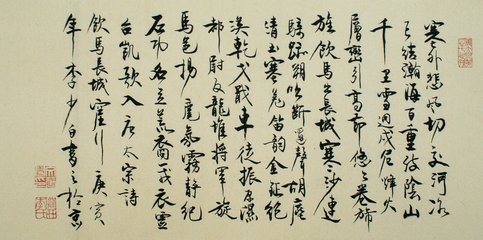 塞外悲風切交河冰
已結瀚海百重波陰山
千里雪迥戍危烽火
層巒引高節悠悠卷旆
旌飲馬出長城寒沙連
騎跡朔吹斷邊聲胡塵
清玉塞羌笛韻金鉦絕
漠乾戈戢車徒振原隰
都尉反龍堆將軍旋
馬邑揚麾氛霧靜紀
石功名立荒裔一戎衣靈
台凱歌入唐太宗詩
飲馬長城窟行庚寅
年李少白書之於京